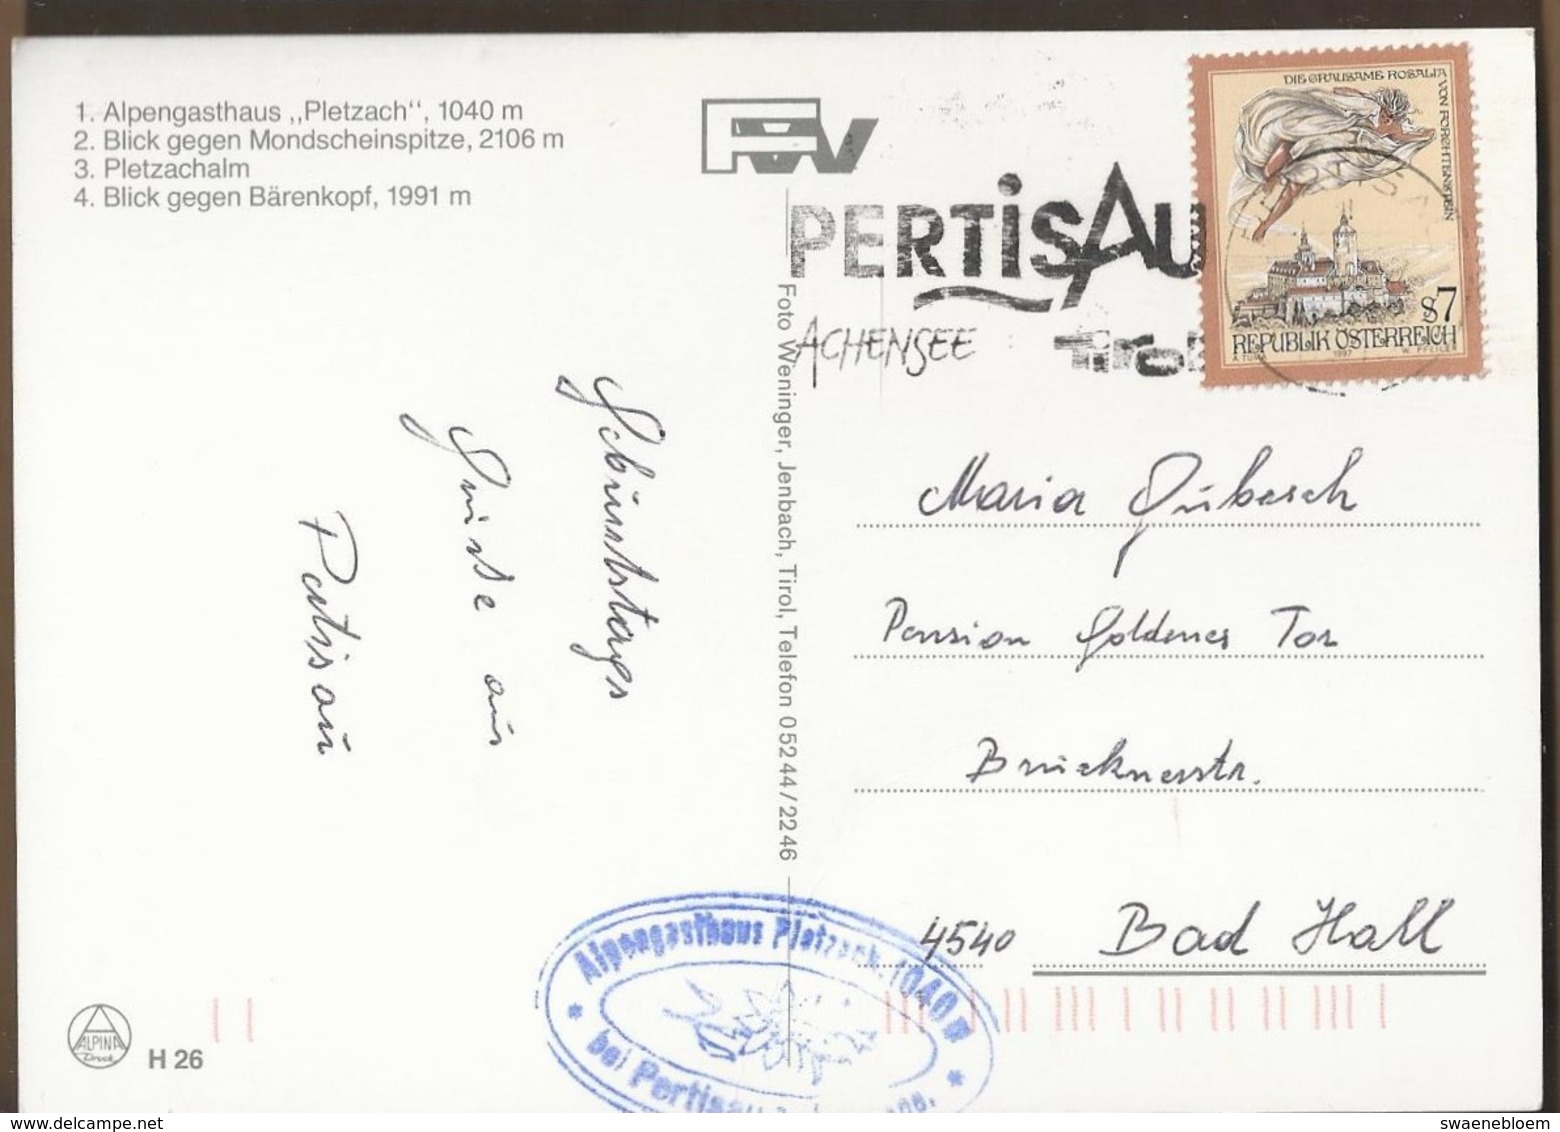 1. Alpengasthaus „Pletzach“, 1040 m
2. Blick gegen Mondscheinspitze, 2106 m
3. Pletzachalm
4. Blick gegen Bärenkopf, 1991 m
FW
PERTISAU
ACHENSEE Tirol
DIE GRAUSAME ROSALIA VON FORCHTENSTEIN
S7
REPUBLIK ÖSTERREICH
A. TUMA 1997 W. PFEILER
Foto Weninger, Jenbach, Tirol, Telefon 05244/2246
Geburtstags
Grüße aus
Pertisau
Maria
Pension Goldenes Tor
Brucknerstr.
4540 Bad Hall
Alpengasthaus Pletzach, 1040 m
* bei Pertisau *
ALPINA
Druck
H 26
delcampe.net
swaenebloem